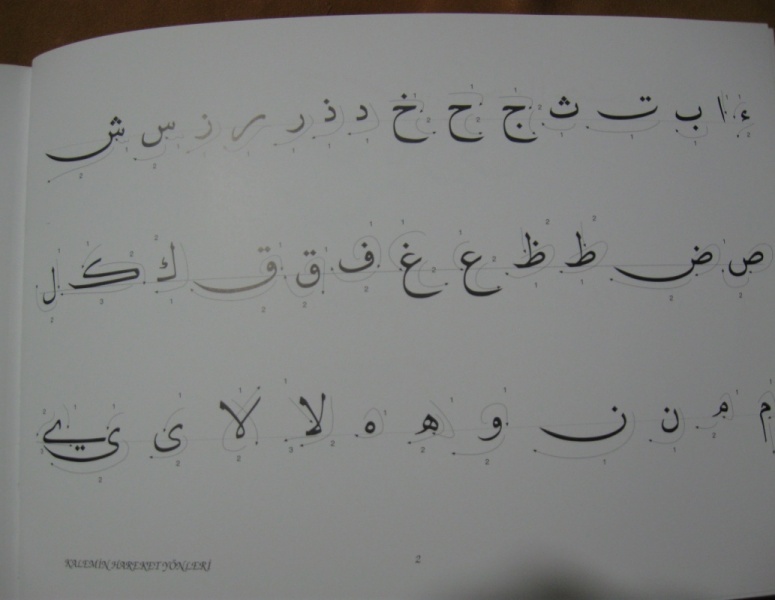 ء ا ب ت ث ج ح خ د ذ ر ر ز س ش
ص ض ط ظ ع غ ف ق ق ك ك ل
م م ن ن و ه ه لا لا ى ى ے
KALEMİN HAREKET YÖNLERİ
2